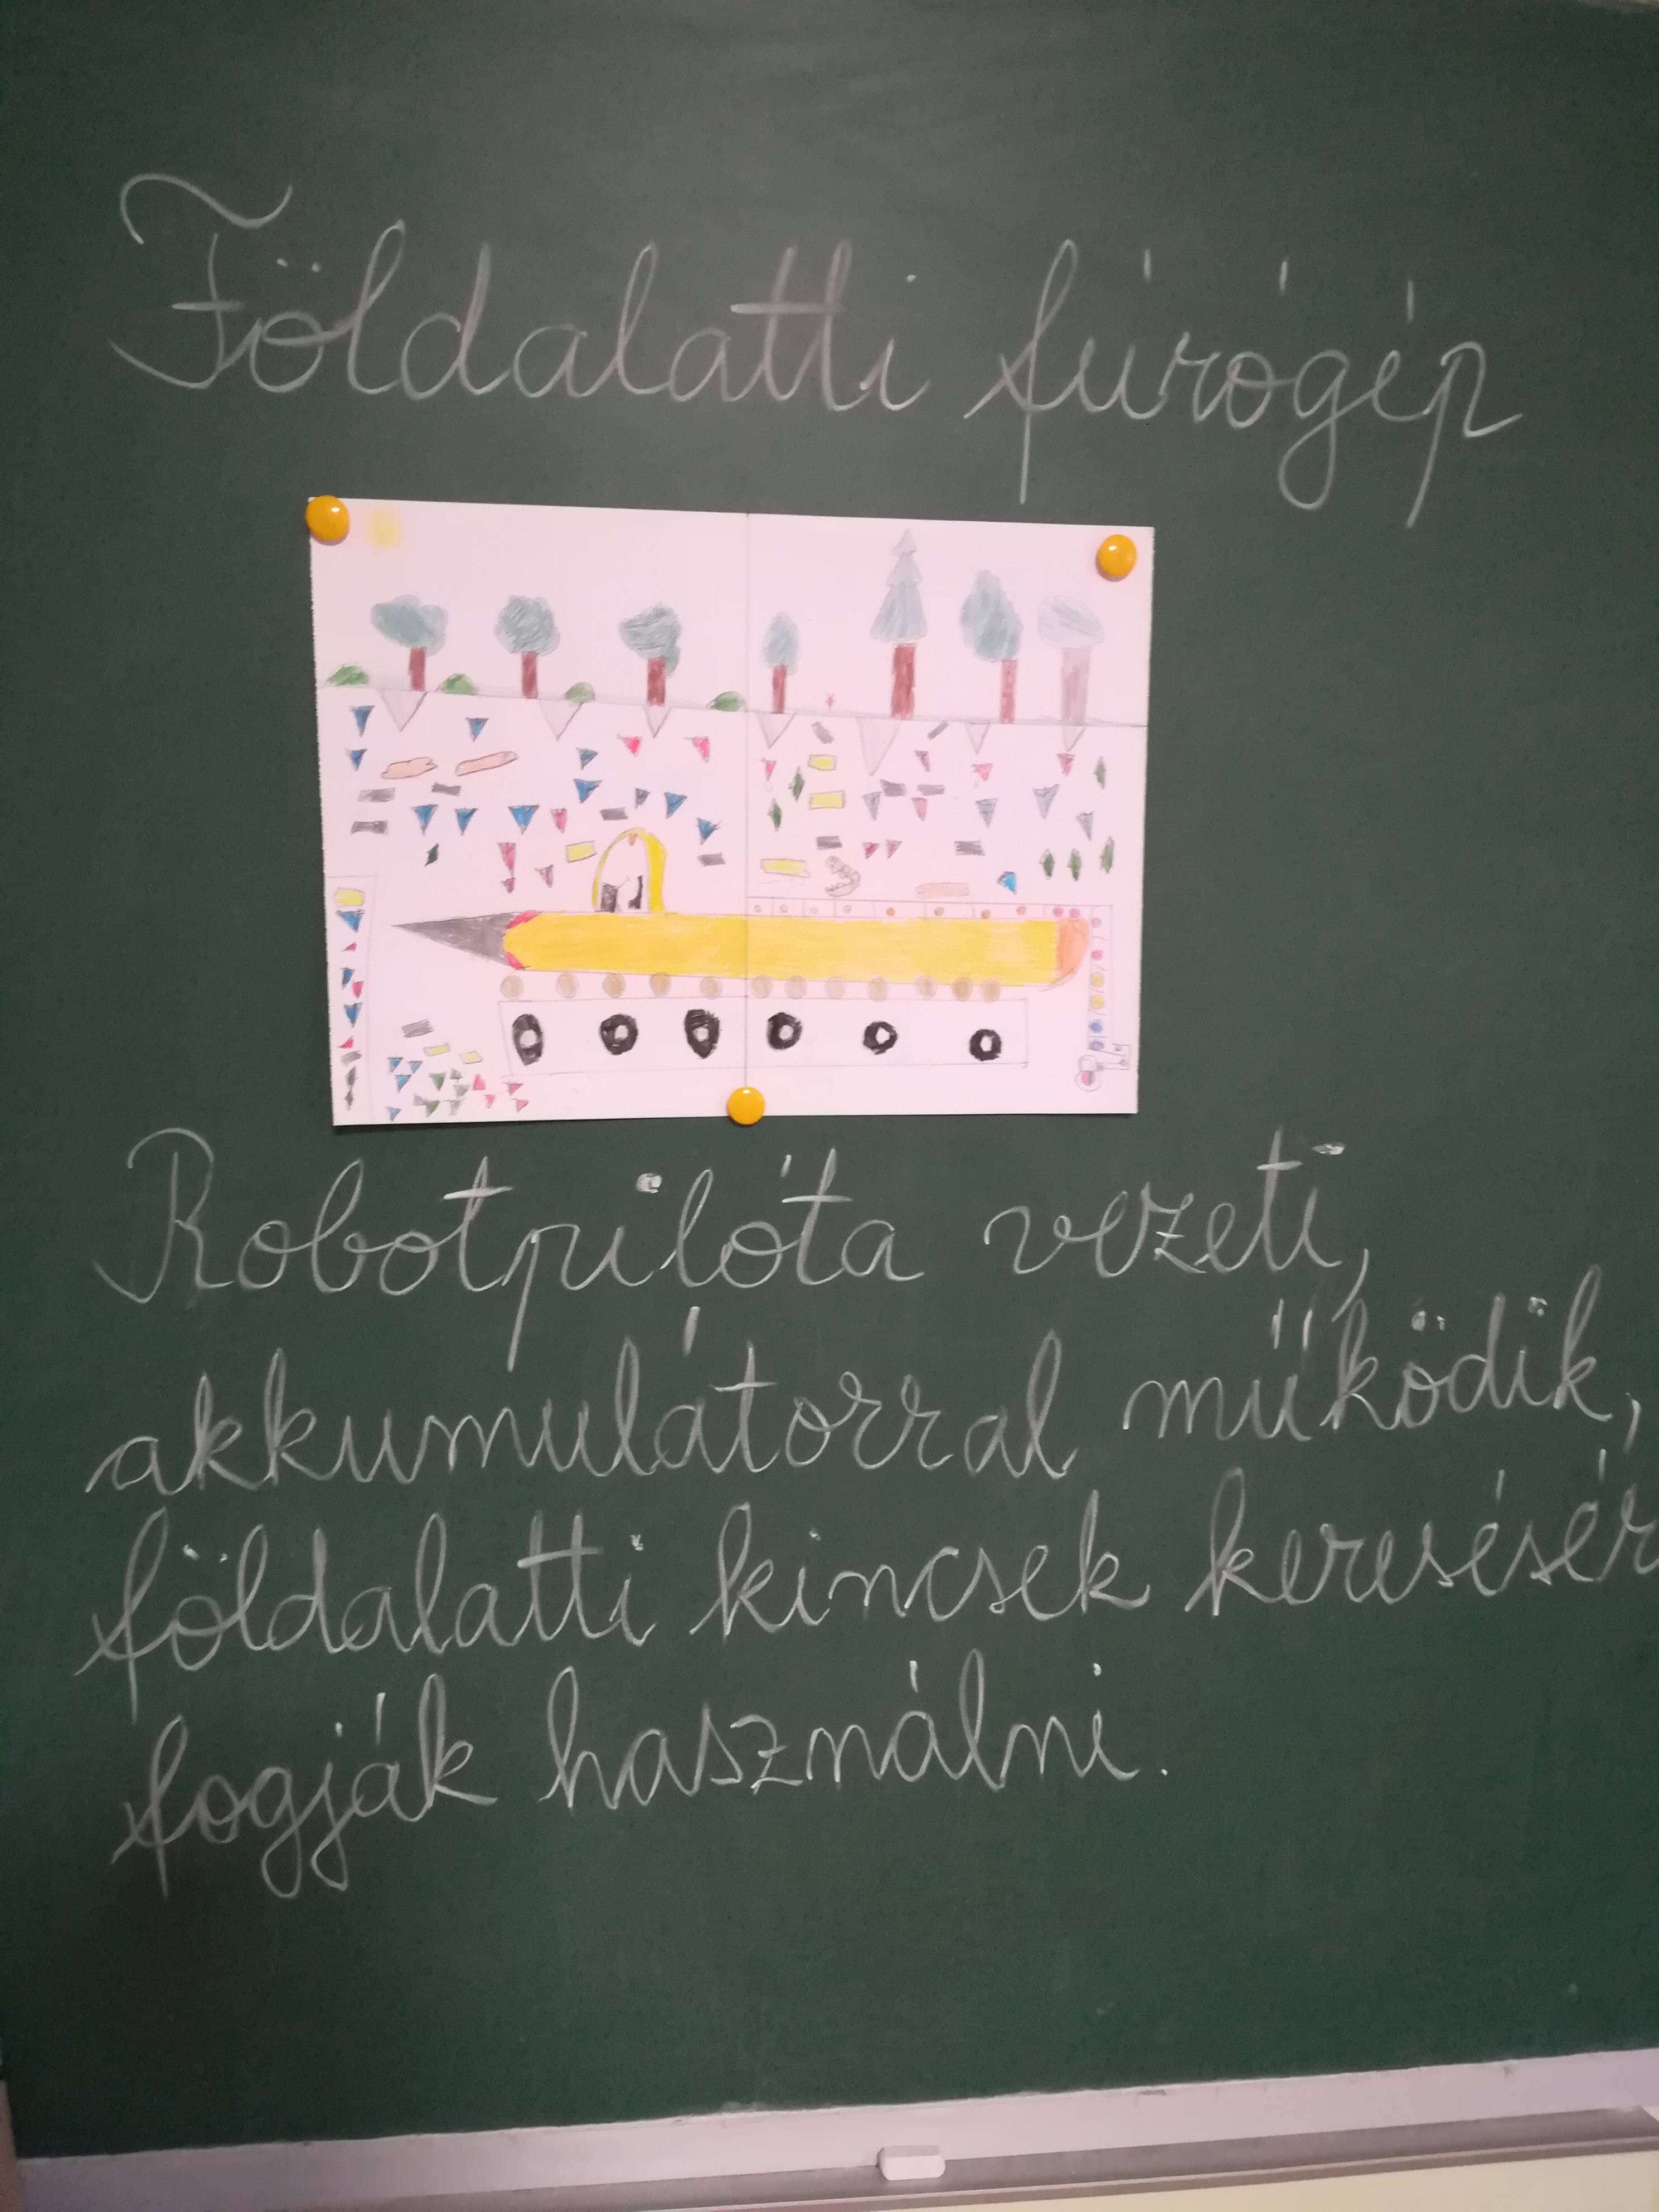 Földalatti fúrógép
Robotpilóta vezeti,
akkumulátorral működik,
földalatti kincsek keresésér
fogják használni.